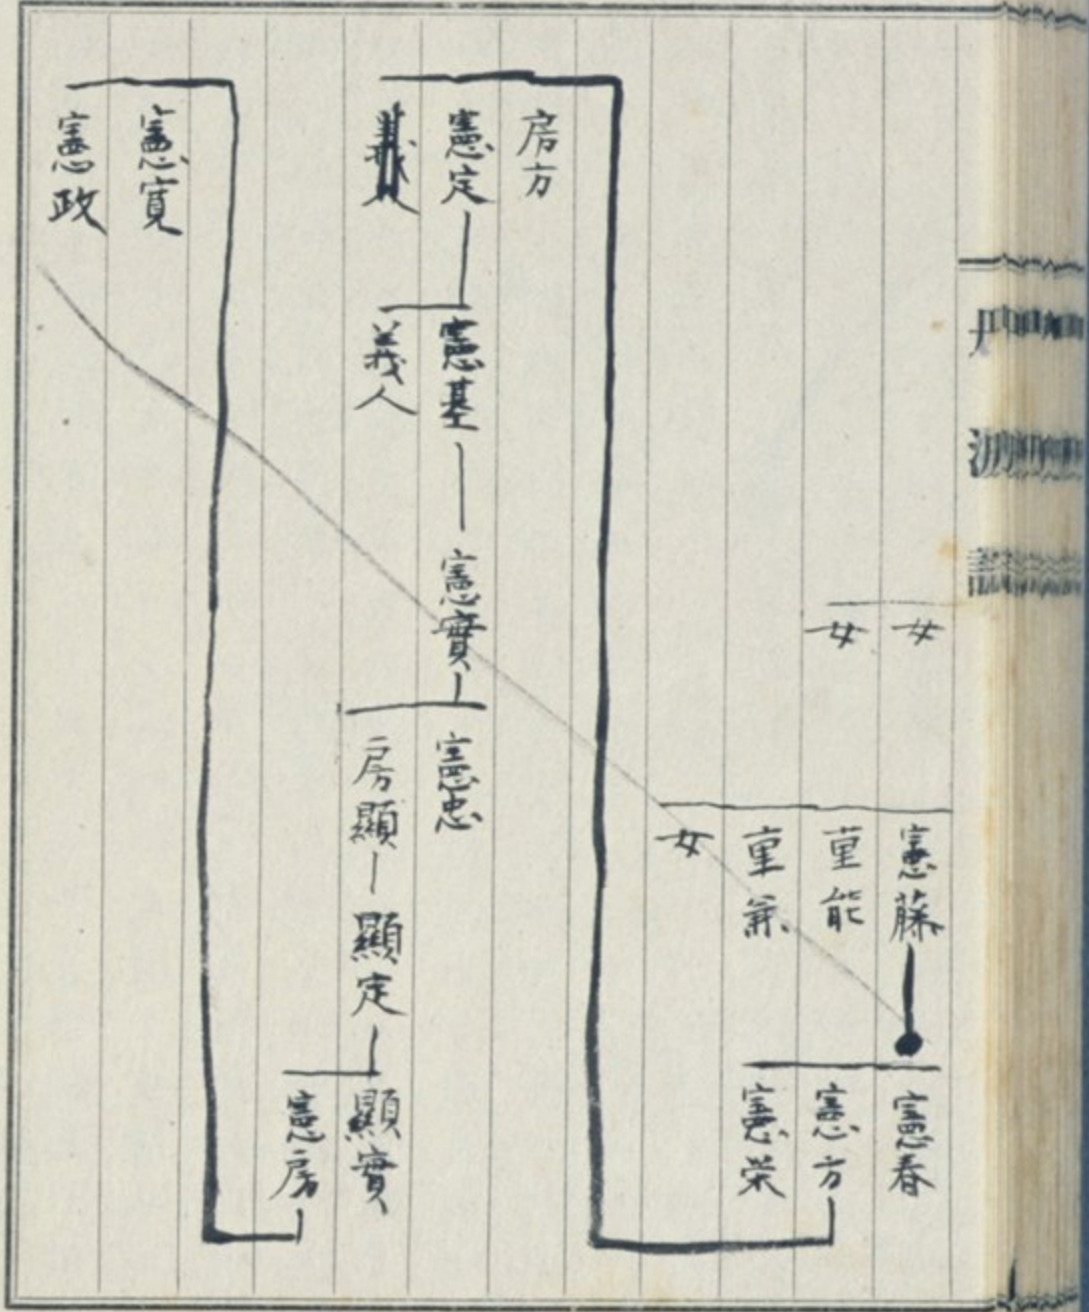 女
女
憲藤
重能
重兼
女
憲春
憲方
憲栄
房方
憲定
憲基
義人
憲實
憲忠
房顯
顯定
顯實
憲房
憲寛
憲政